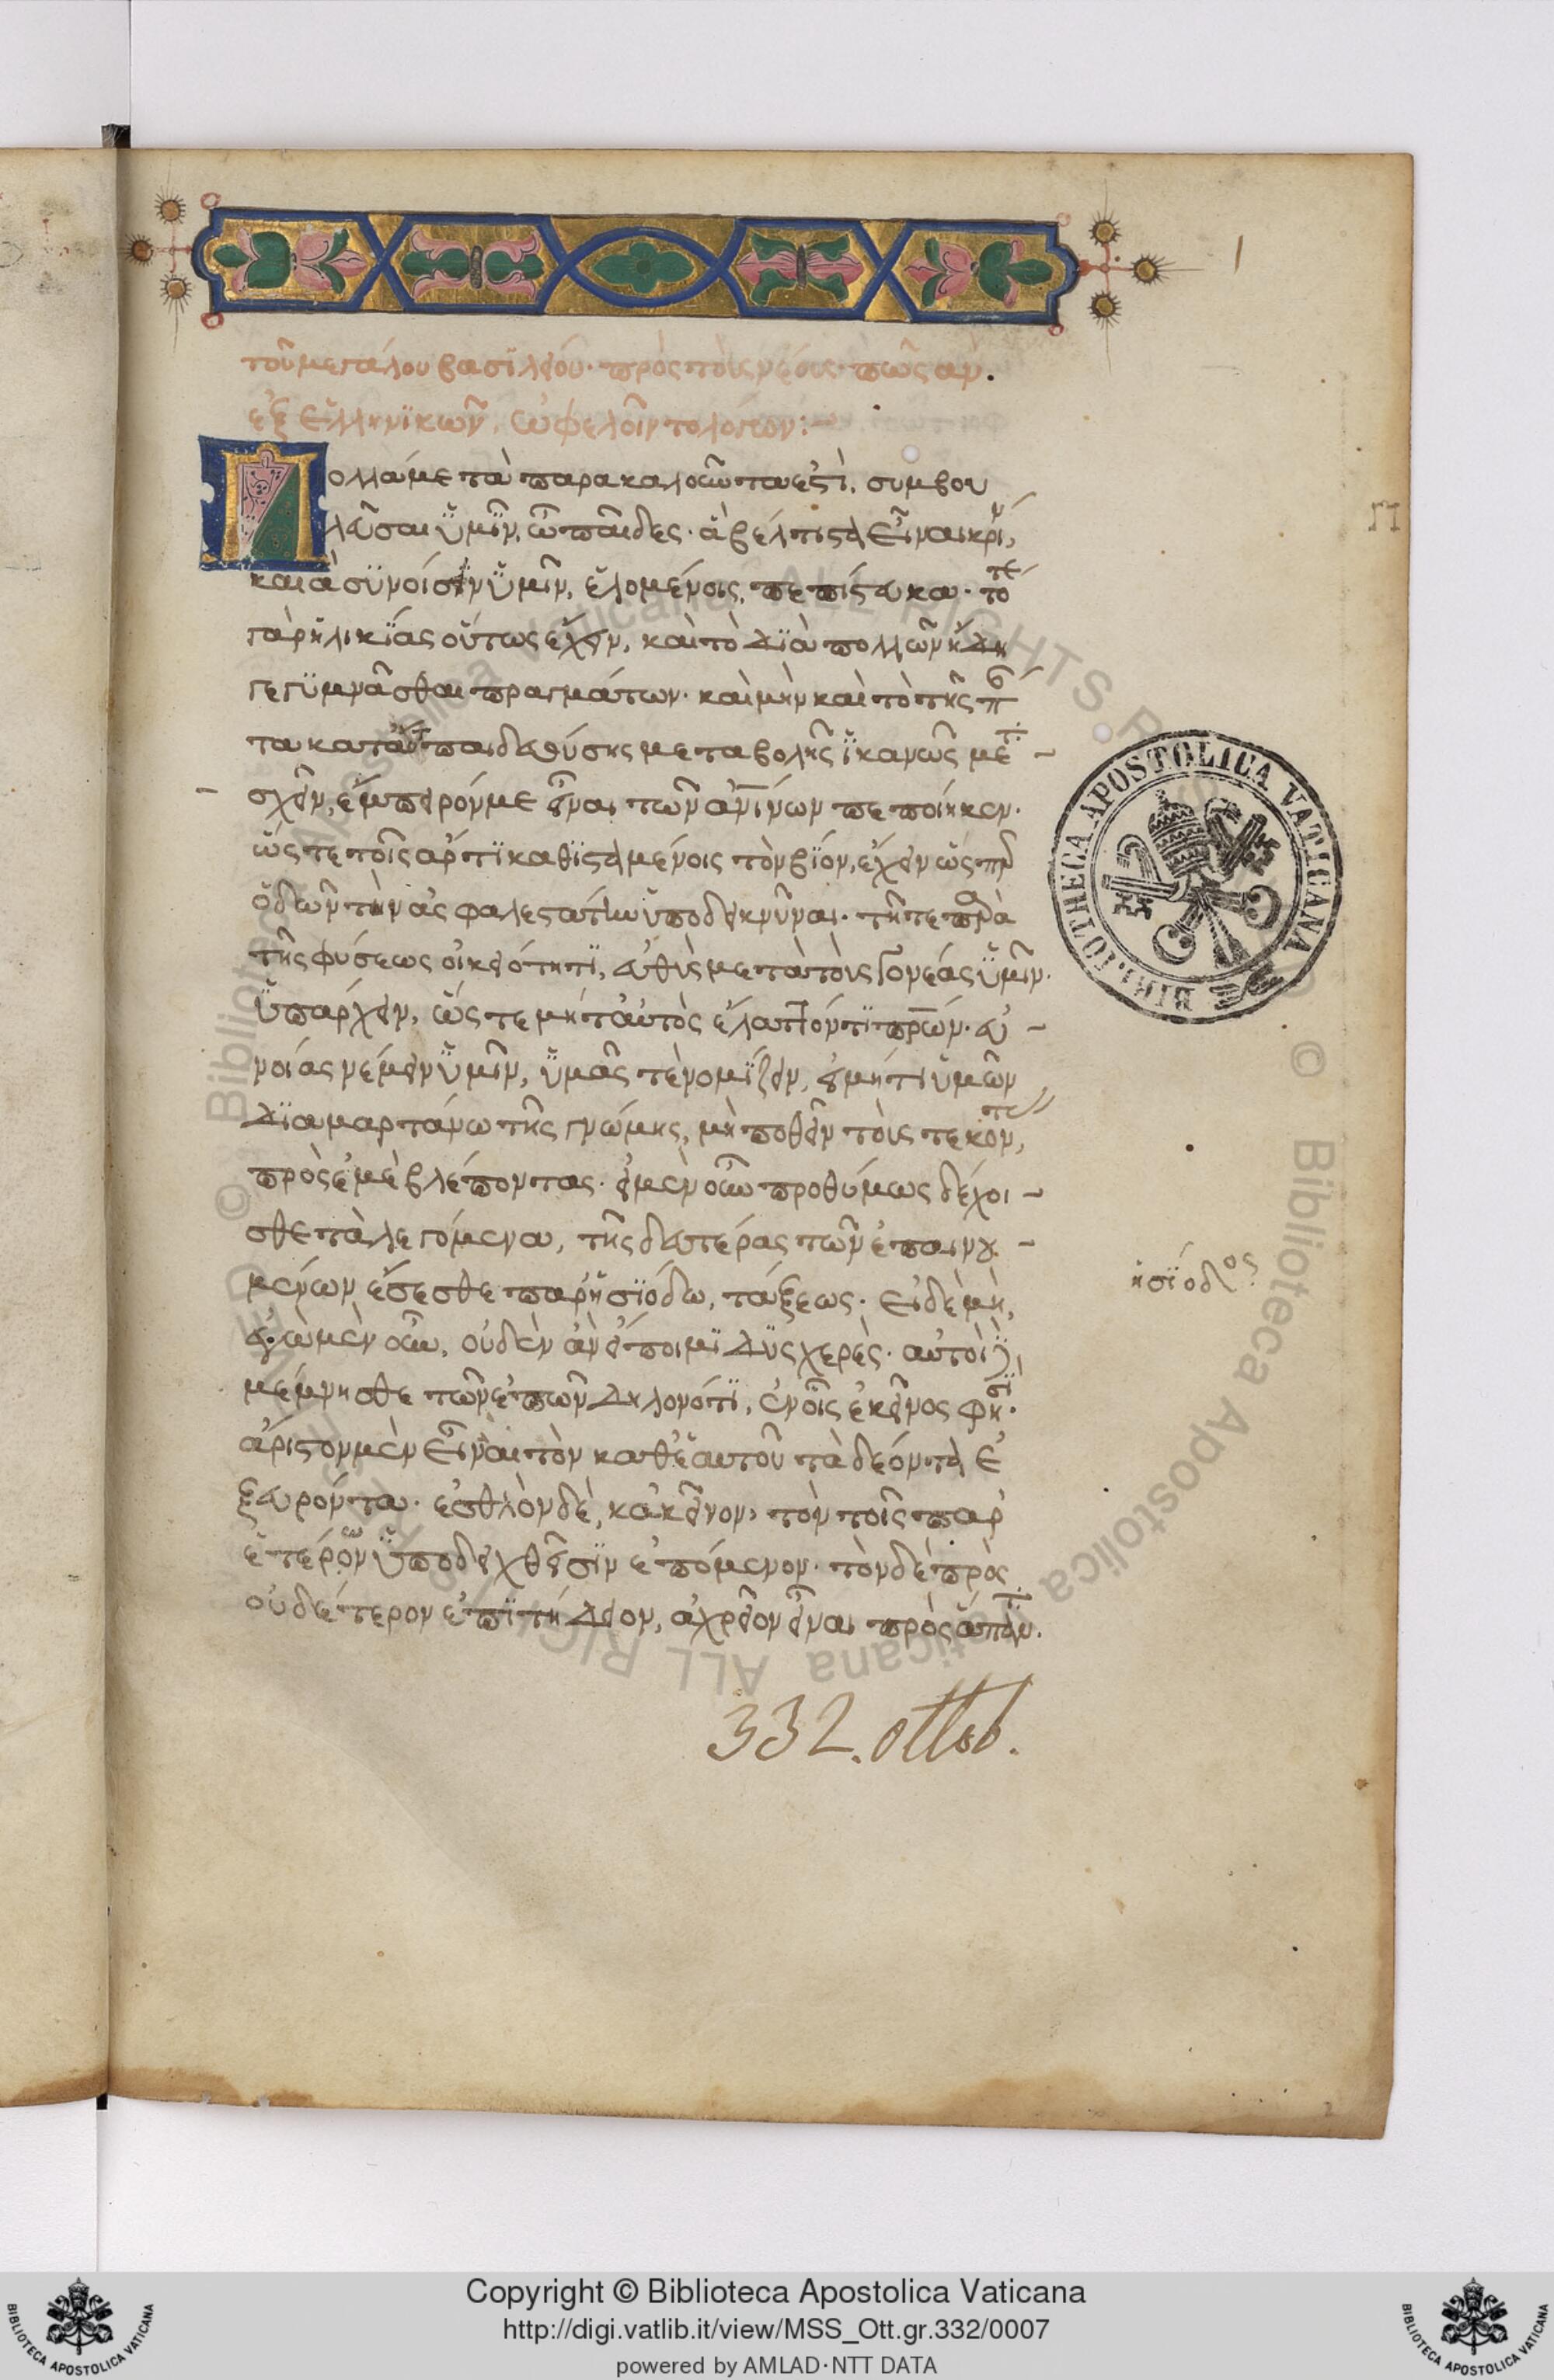 τοῦ μεγάλου βασϊλείου· πρὸς τοὺς νέους· πῶς ἂν.
ἐξ ἑλληνϊκῶν, ὠφελοῖντο λόγων:~
Πολλά με τὰ παρακαλοῦντα ἐστὶ, συμβου
λεῦσαι ὑμῖν, ὦ παῖδες· ἃ βέλτιστα εἶναι κρίν,
καὶ ἃ συνοίσειν ὑμῖν, ἑλομένοις, πεπίστευκα· τό τε
γὰρ ἡλικίας οὕτως ἔχειν, καὶ τὸ δϊὰ πολλῶν ἤδη
γεγυμνᾶσθαι πραγμάτων· καὶ μὴν καὶ τὸ τῆς
παιδευούσης μεταβολῆς ἱκανῶς με
σχεῖν, ἔμπειρόν με εἶναι τῶν ἀνίνων πεποίηκεν·
ὥστε τοῖς ἄρτϊ καθϊσταμένοις τὸν βίον, ἔχειν ὥσπερ
ὁδῶν τὴν ἀσφαλεστάτην ὑποδεικνύναι· τῆ τε παρὰ
τῆς φύσεως οἰκειότητι, εὐθὺς μετὰ τοὺς γονέας ὑμῖν·
ὑπάρχειν, ὥστε μήτ' αὐτὸς ἔλαττόν τι πρων· εὐ
νοίας νέμειν ὑμῖν, ὑμᾶς τὲ νομίζειν, εἰ μή τι ὑμῶν
δϊαμαρτάνω τῆς γνώμης, μὴ ποθεῖν τοὺς τεκόντ,
πρὸς ἐμὲ βλέποντας· εἰ μὲν οὖν προθύμως δέχοι
σθε τὰ λεγόμενα, τῆς δευτέρας τῶν ἐπαινου
μένων ἔσεσθε παρ' ἡσϊόδω, τάξεως· εἰ δὲ μὴ,
ἐγὼ μὲν οὖν, οὐδὲν ἂν εἴποιμϊ δυσχερὲς· αὐτοὶ
μέμνησθε τῶν ἐπῶν δηλονότϊ, ἐν οἷς ἐκεῖνος φησὶ·
ἄριστον μὲν εἶναι τὸν καθ' ἑαυτοῦ τὰ δέοντα ἐ
ξευρόντα· ἐσθλὸν δὲ, κἀκεῖνον, τὸν τοῖς παρ'
ἑτέρων ὑποδειχθεῖσϊν ἑπόμενον· τὸν δὲ πρὸς
οὐδέτερον ἐπϊτήδειον, ἀχρεῖον εἶναι πρὸς ἅπαντ.
ἡσϊόδος
332. ottob.
BIBLIOTHECA APOSTOLICA VATICANA
Copyright © Biblioteca Apostolica Vaticana
http://digi.vatlib.it/view/MSS_Ott.gr.332/0007
powered by AMLAD·NTT DATA
BIBLIOTECA APOSTOLICA VATICANA
BIBLIOTECA APOSTOLICA VATICANA